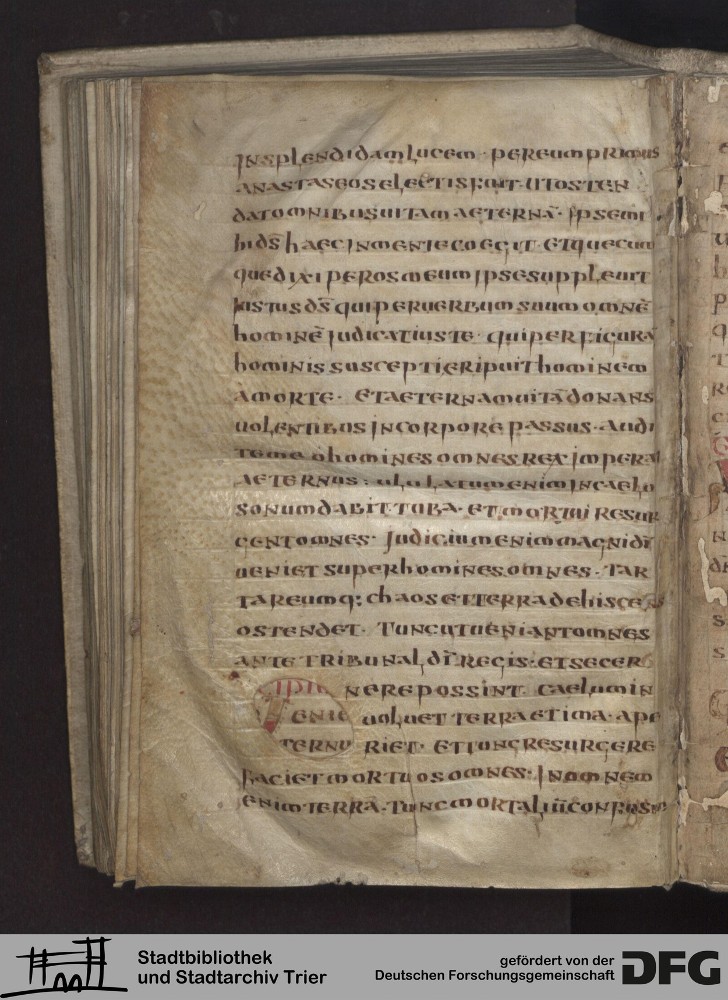 INSPLENDIDAM LUCEM · PER EUM PRIMUS
ANASTASEOS ELECTIS FUIT · UT OSTEN
DAT OMNIBUS UITAM AETERNĀ · IPSE MI
HI D̄S HAEC IN MENTE COEGIT · ET QUECUM
QUE DIXI PER OS MEUM IPSE SUPPLEUIT
IUSTUS D̄S QUI PER UERBUM SUUM OMNĒ
HOMINĒ IUDICAT IUSTE · QUI PER FIGURĀ
HOMINIS SUSCEPTI ERIPUIT HOMINEM
A MORTE · ET AETERNAM UITĀ DONANS
UOLENTIBUS IN CORPORE PASSUS · AUDI
TE ME O HOMINES OMNES REX IMPERAT
AETERNUS : ULULATUM ENIM IN CAELO
SONUM DABIT TUBA · ET MORTUI RESUR
GENT OMNES · IUDICIUM ENIM MAGNI DĪ
UENIET SUPER HOMINES OMNES · TAR
TAREUMQ; CHAOS ET TERRA DEHISCENS
OSTENDET · TUNC UT UENIANT OMNES
ANTE TRIBUNAL DĪ REGIS · ET SECER
NERE POSSINT CAELUM IN
UOLUET TERRA ET IMA · APE
RIET · ET TUNC RESURGERE
FACIET MORTUOS OMNES · IN OMNEM
ENIM TERRĀ · TUNC MORTALIŪ
Stadtbibliothek
und Stadtarchiv Trier
gefördert von der
Deutschen Forschungsgemeinschaft
DFG